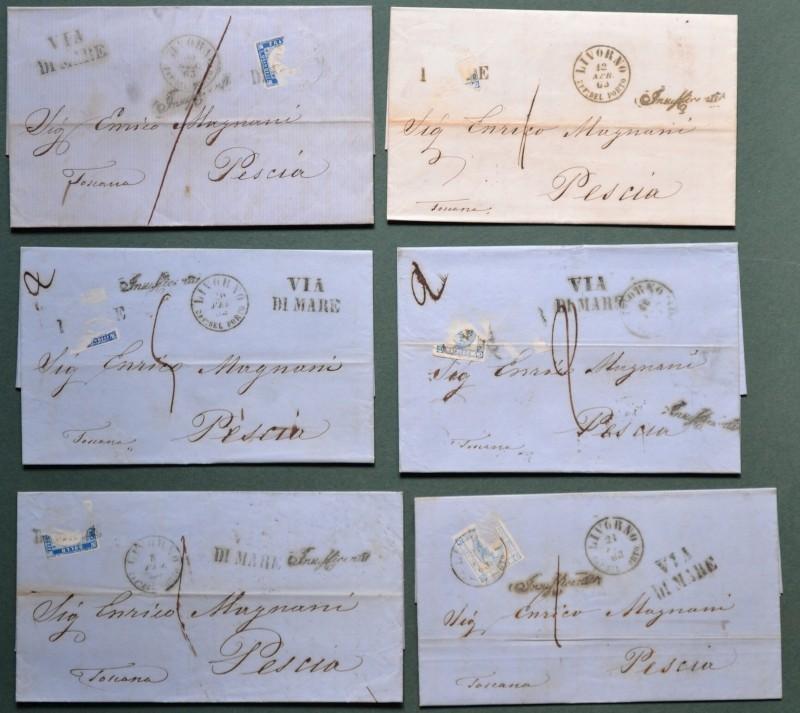 VIA
DI MARE
LIVORNO
63
Insufficiente
Sig Enrico Magnani
Pescia
Toscana
LIVORNO
12
APR.
63
STR. DEL PORTO
Insufficiente
Sig Enrico Magnani
Pescia
Toscana
Insufficiente
LIVORNO
STR. DEL PORTO
VIA
DI MARE
Sig Enrico Magnani
Pescia
Toscana
VIA
DI MARE
Sig Enrico Magnani
Insufficiente
Pescia
Toscana
BOLLO
LIVORNO
DI MARE
Insufficiente
Sig Enrico Magnani
Pescia
Toscana
LIVORNO
24
63
VIA
DI MARE
Insufficiente
Sig Enrico Magnani
Pescia
Toscana